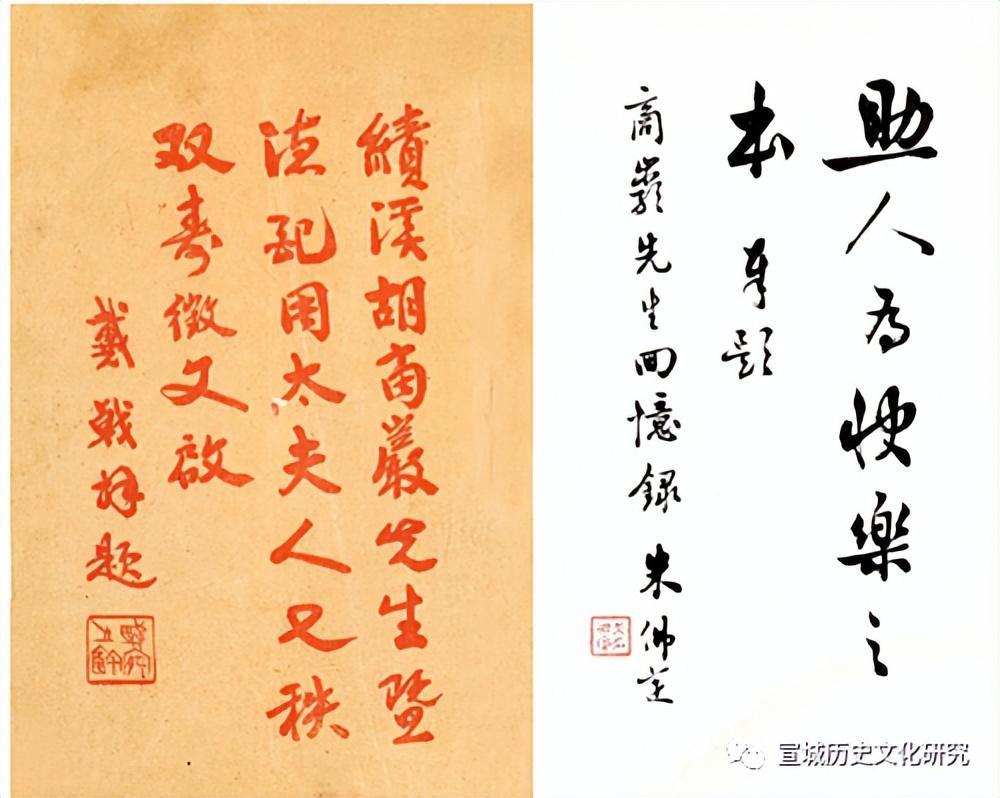 績溪胡商巖先生暨
德配周太夫人七秩
双寿徵文啟
戴戟拜题
助人為快樂之
本 奉题
商巖先生回憶録 朱佛定
宣城历史文化研究